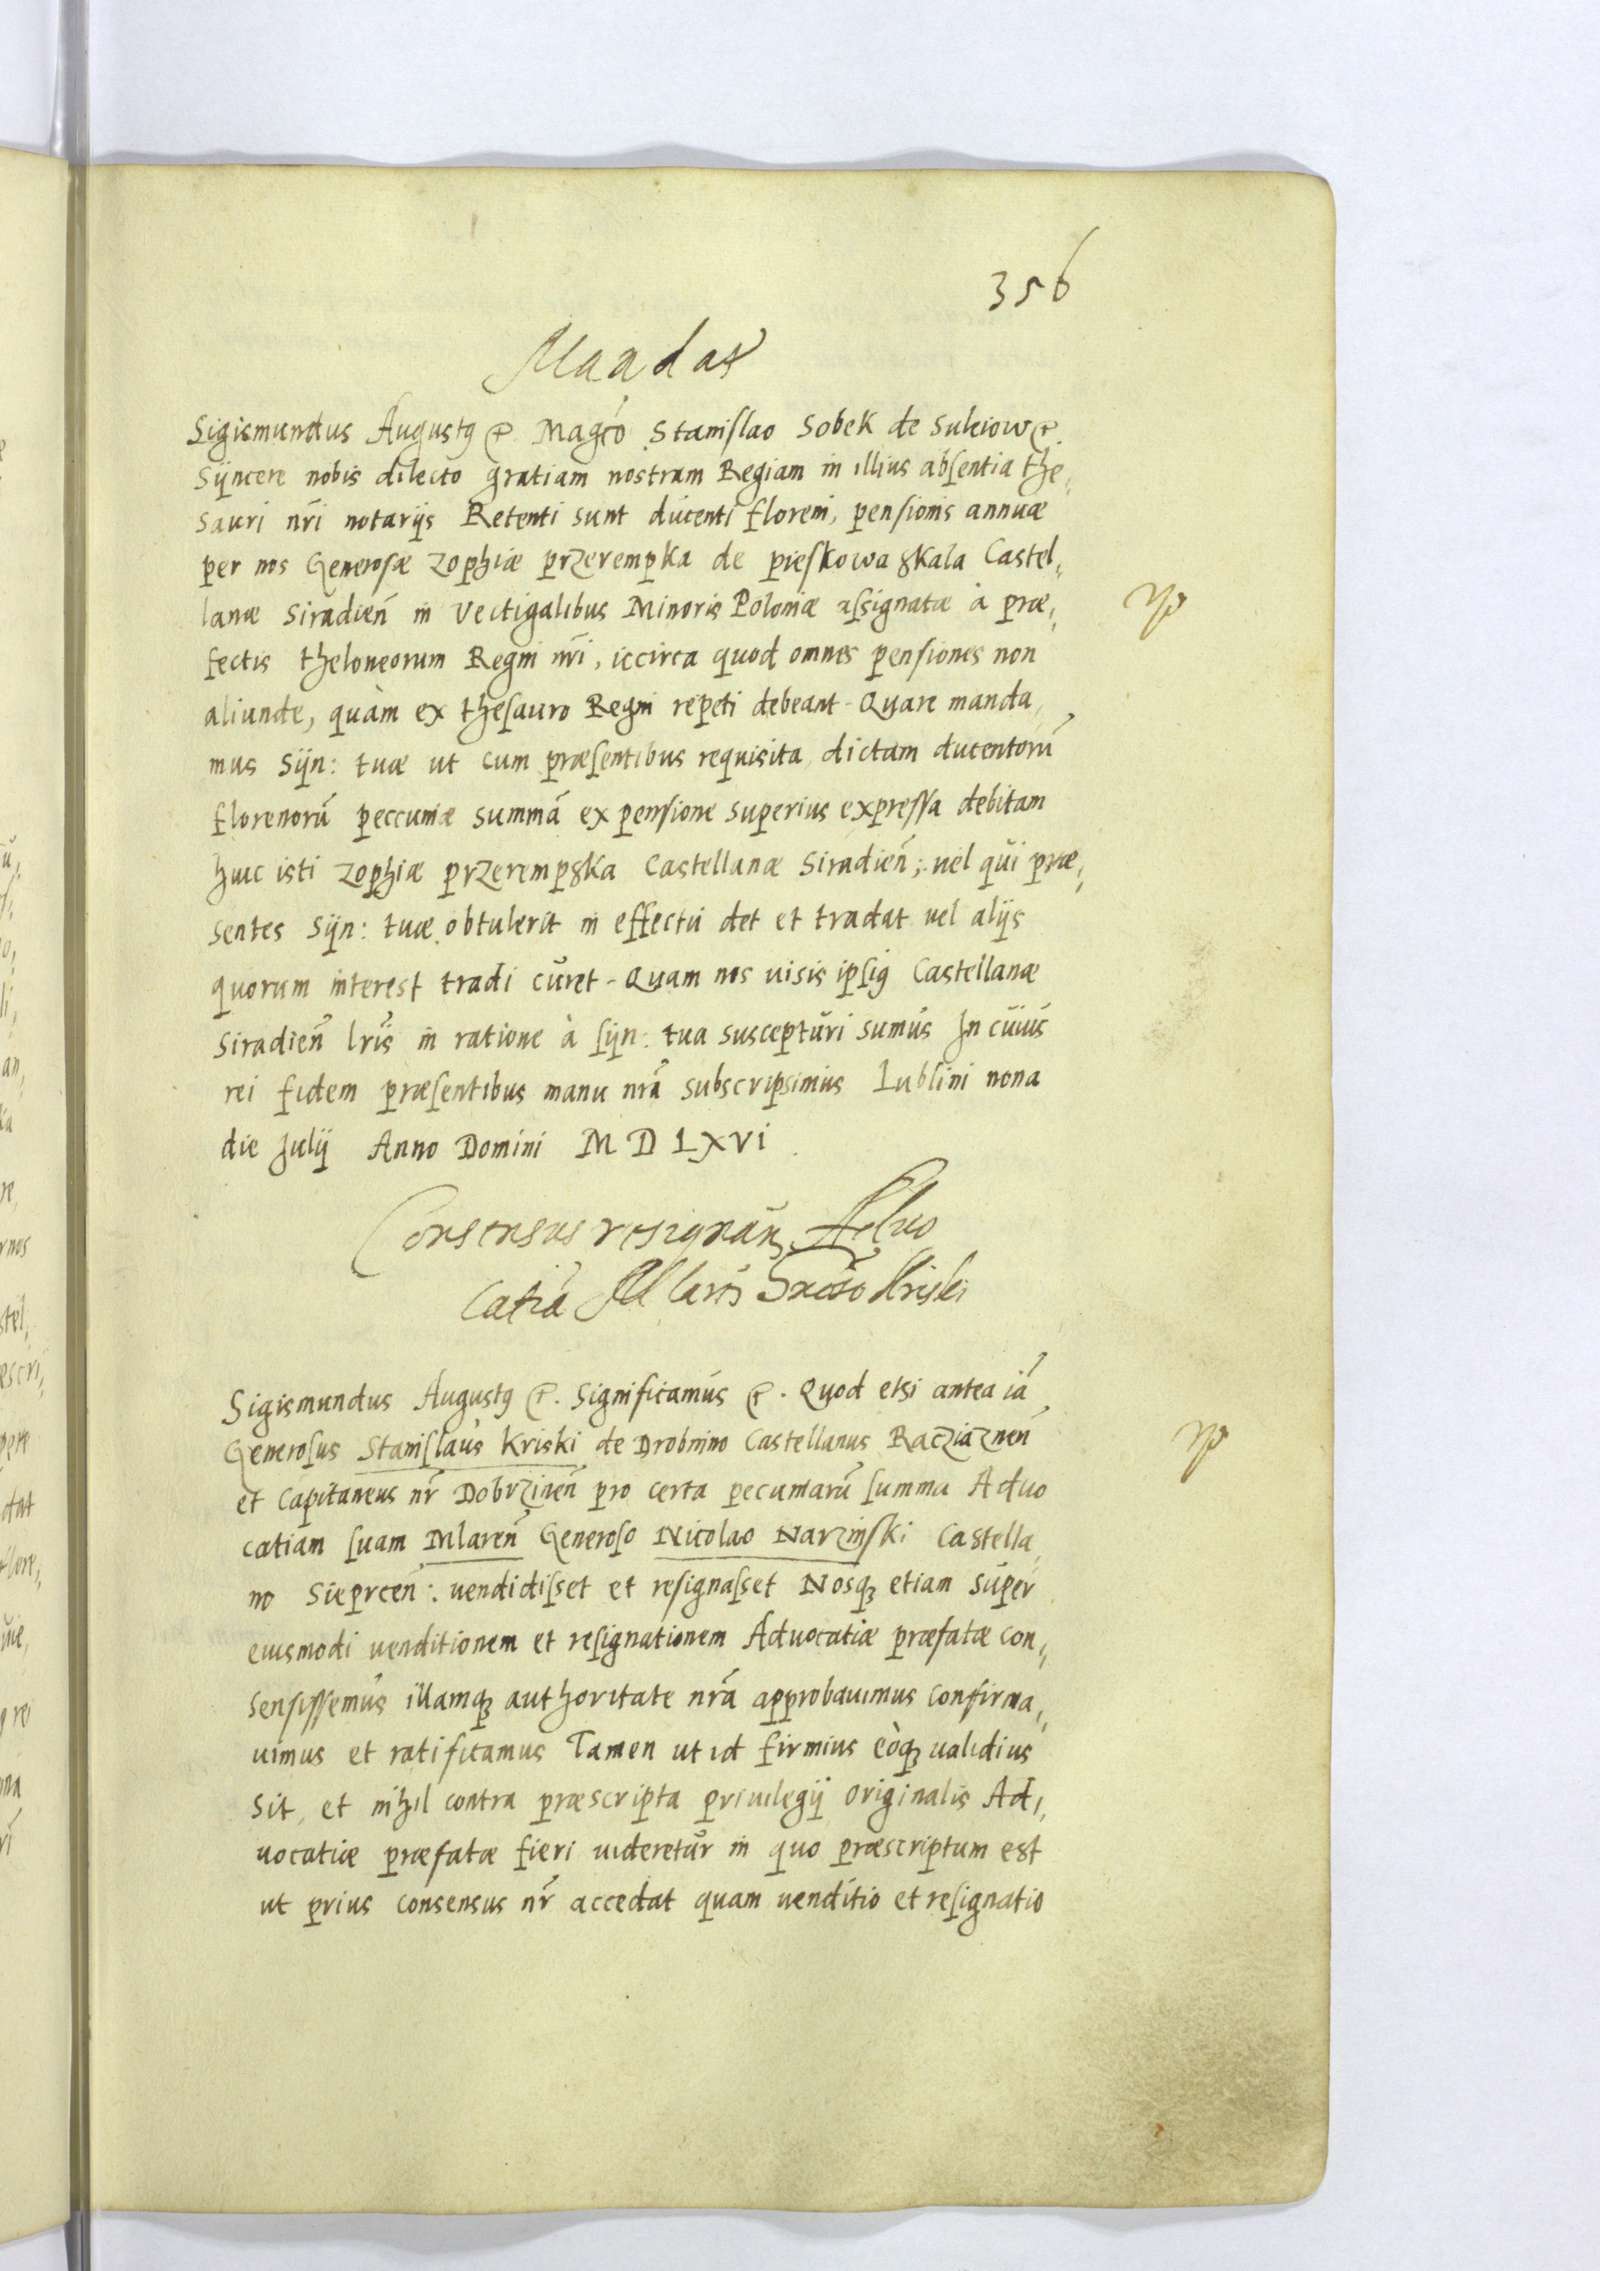 356
Mandat
Sigismundus Augustꝯ &. Magco Stanislao Sobek de Suleiow &.
Sÿncere nobis dilecto gratiam nostram Regiam in illius absentia the„
sauri nrī notarijs Retenti sunt ducenti floreni, pensionis annuæ
per nos Generosæ Zophiæ przerempka de pieskowa skala Castel„
lanæ Siradien̄ in Vectigalibus Minoris Poloniæ assignatæ à præ„
fectis theloneorum Regni nrī, iccirca quod omnes pensiones non
aliunde, quàm ex thesauro Regni repeti debeant - Quare manda„
mus Sÿn: tuæ ut cum præsentibus requisita dictam ducentorū
florenorū peccuniæ summā ex pensione superius expressa debitam
huic isti Zophiæ przerempska Castellanæ Siradien̄; uel qui præ„
sentes Sÿn: tuæ obtulerit in effectu det et tradat uel alijs
quorum interest tradi curet - Quam nos uisis ipsiꝯ Castellanæ
Siradien̄ lrīs in ratione à sÿn: tua suscepturi sumus In cuius
rei fidem præsentibus manu nrā subscripsimus Lublini nona
die Julij Anno Domini M D L X V i
Consensus resignan̄ Aduo
catiā Mlaren̄ Kriski
Sigismundus Augustꝯ &. Significamus &. Quod etsi antea iā
Generosus Stanislaus Kriski de Drobnino Castellanus Racziąznen̄
et Capitaneus nr̄ Dobrzinen̄ pro certa pecuniarū summa Aduo
catiam suam Mlaren̄ Generoso Nicolao Narzinski Castella„
no Sieprcen̄: uendidisset et resignasset Nosqꝫ etiam super
eiusmodi uenditionem et resignationem Aduocatiæ præfatæ con„
sensissemus illamqꝫ authoritate nrā approbauimus confirma„
uimus et ratificamus Tamen ut id firmius eòqꝫ ualidius
sit, et nihil contra præscripta priuilegij originalis Ad„
uocatiæ præfatæ fieri uideretur in quo præscriptum est
ut prius consensus nr̄ accedat quam uenditio et resignatio